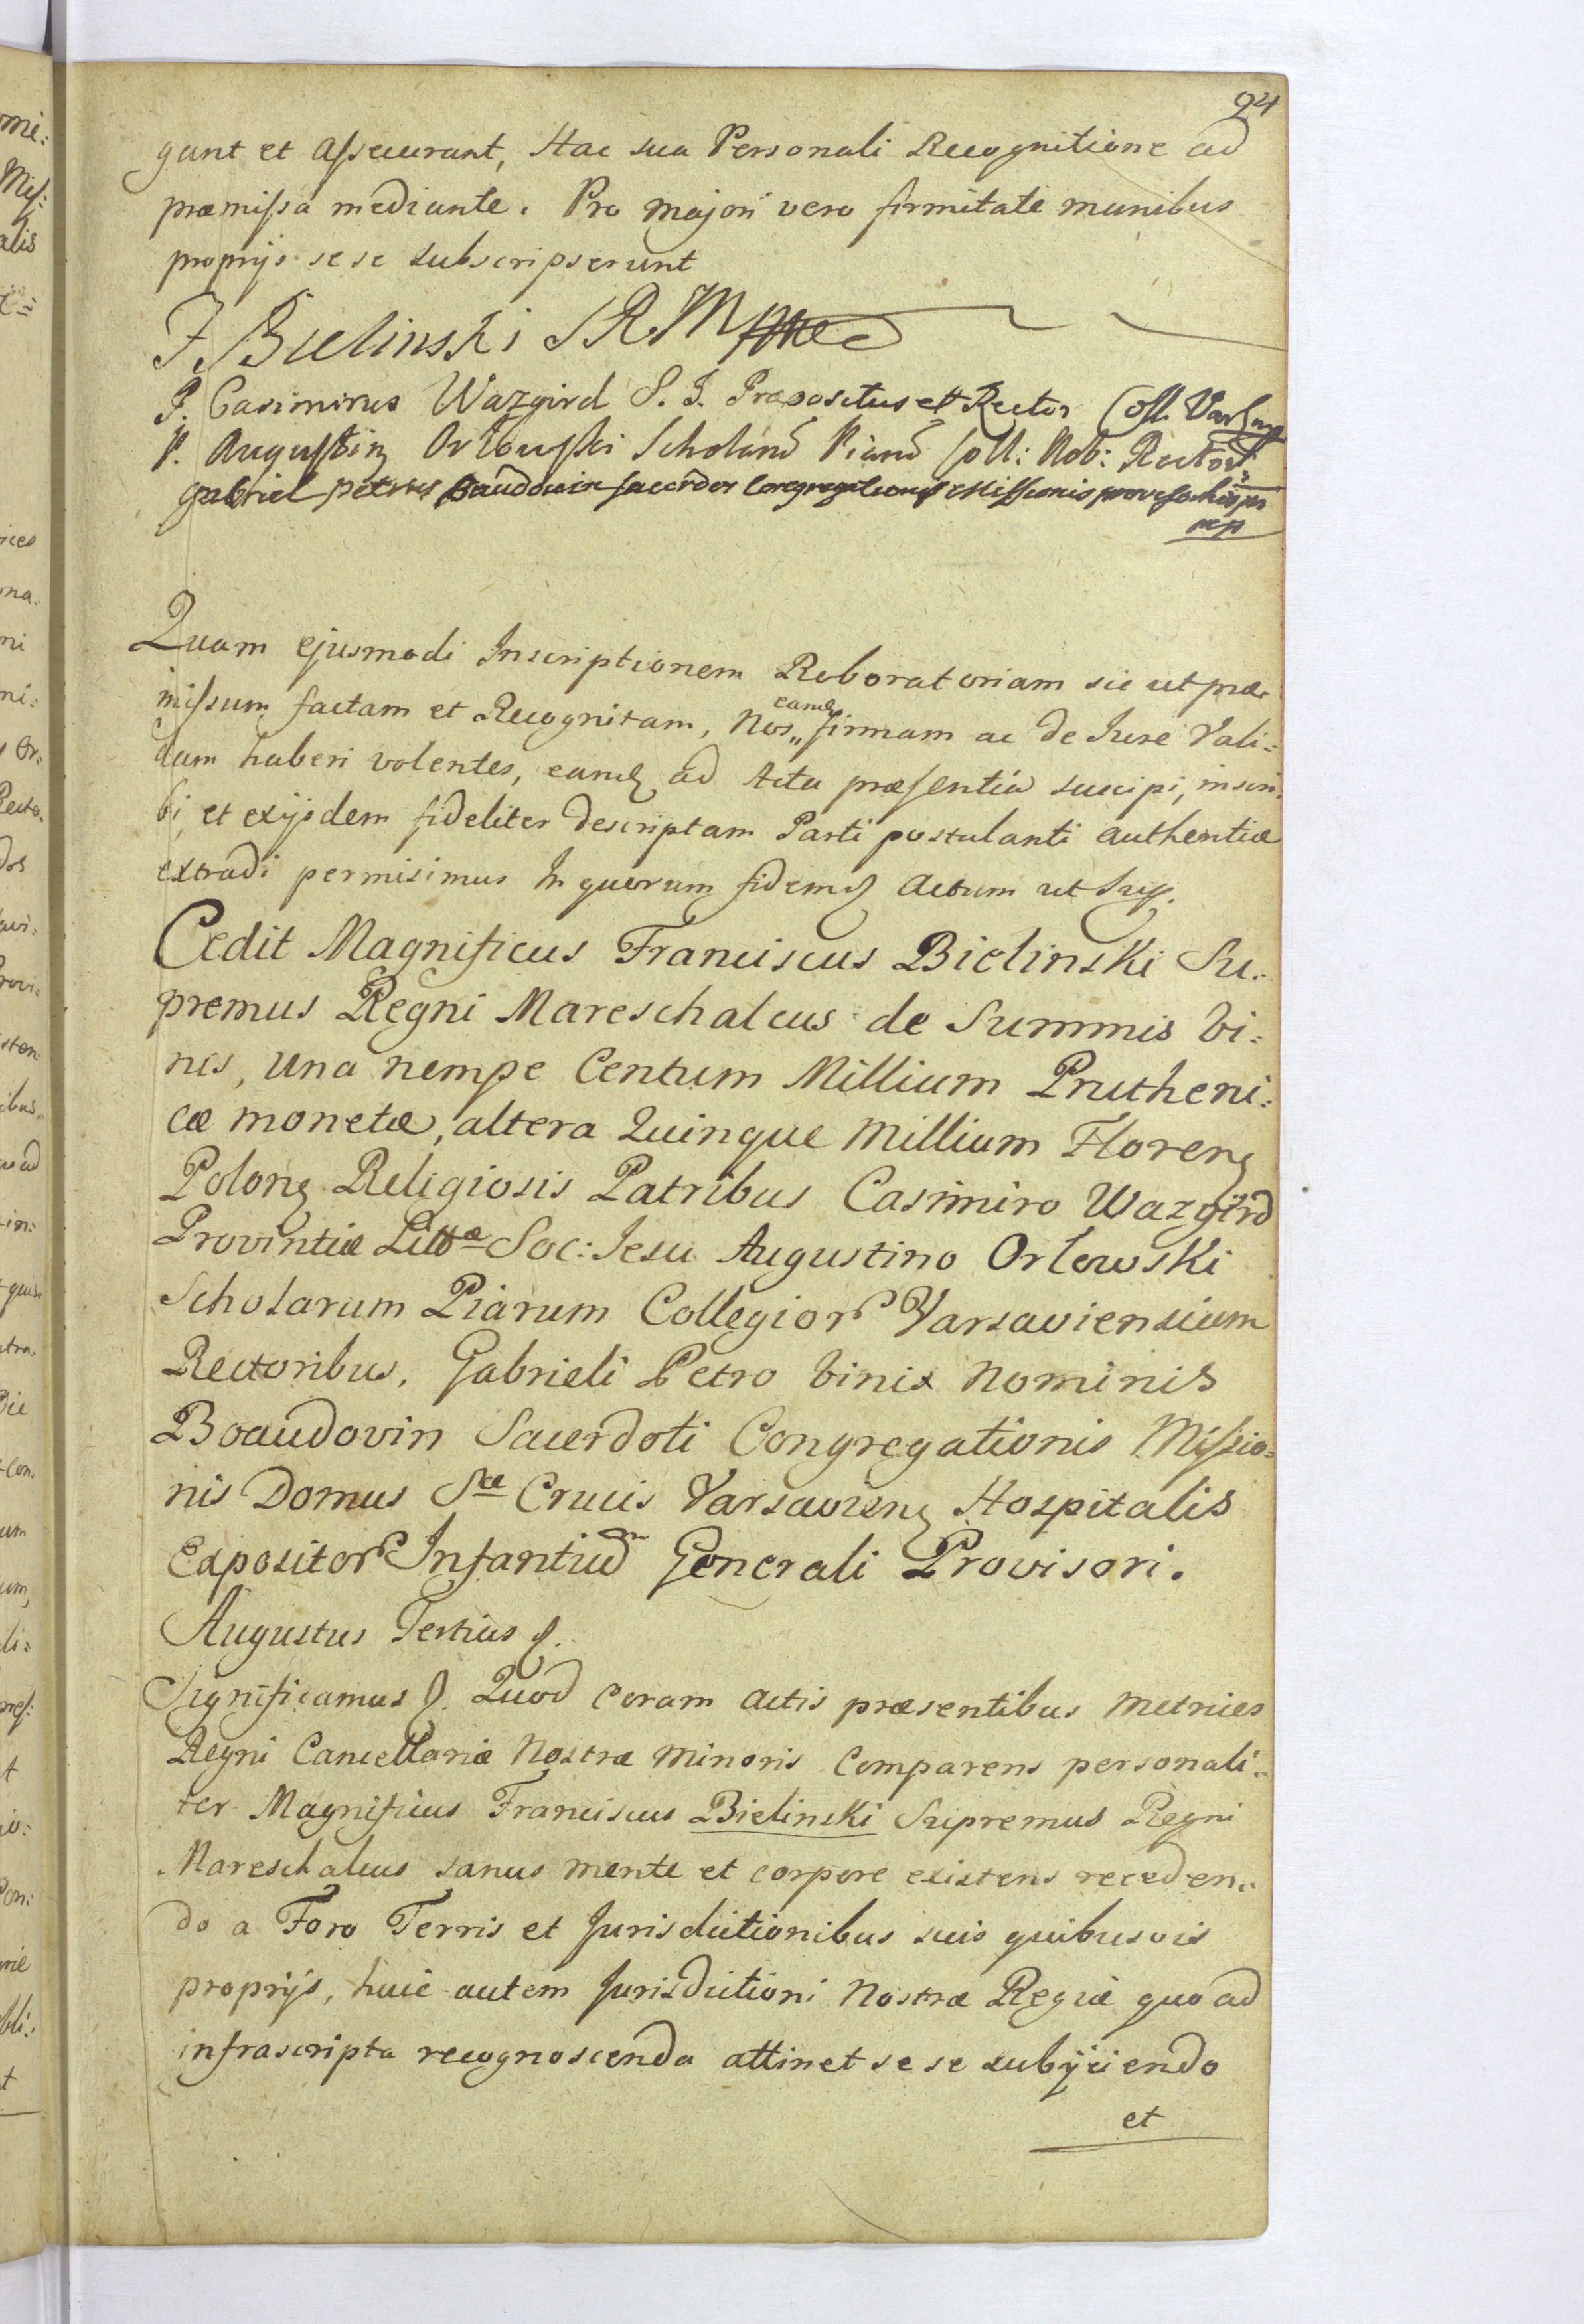 94
gunt et assecurant, Hac sua Personali Recognitione ad
præmissa mediante. Pro majori vero firmitate manibus
proprijs sese subscripserunt
F. Bielinski SRM mp
P. Casimirus Wazgird S. J. Præpositus et Rector Coll. Vars mp
P. Augustinq Orłouski Scholarū Piarū Coll: Nob: Rector
Gabriel petrus Baudouin sacerdos Congregationis Missionis provisor
mp
Quam ejusmodi Inscriptionem Roboratoriam sic ut præ-
missum factam et Recognitam, Nos„ eamq firmam ac de Jure Vali=
dam haberi volentes, eamq ad Acta præsentia suscipi, inscri=
bi, et exijsdem fideliter descriptam Parti postulanti authentice
extradi permisimus In quorum fidem Actum ut Sup.
Cedit Magnificus Franciscus Bielinski Su=
premus Regni Mareschalcus de Summis bi=
nis, una nempe Centum Millium Prutheni=
cæ monetæ, altera Quinque Millium Florenq
Polonq Religiosis Patribus Casimiro Wazgird
Provintiæ Littæ Soc: Jesu Augustino Orłowski
Scholarum Piarum Collegior Varsaviensium
Rectoribus, Gabrieli Petro binis Nominis
Boaudovin Sacerdoti Congregationis Missio=
nis Domus Stæ Crucis Varsavienq Hospitalis
Expositor Infantium Generali Provisori.
Augustus Tertius
Significamus Quod coram Actis præsentibus Metrices
Regni Cancellariæ Nostræ Minoris Comparens personali=
ter Magnificus Franciscus Bielinski Supremus Regni
Mareschalcus sanus mente et corpore existens receden=
do a Foro Terris et Jurisdictionibus suis quibusvis
proprijs, huic autem Jurisdictioni Nostræ Regiæ quo ad
infrascripta recognoscenda attinet sese subijciendo
et